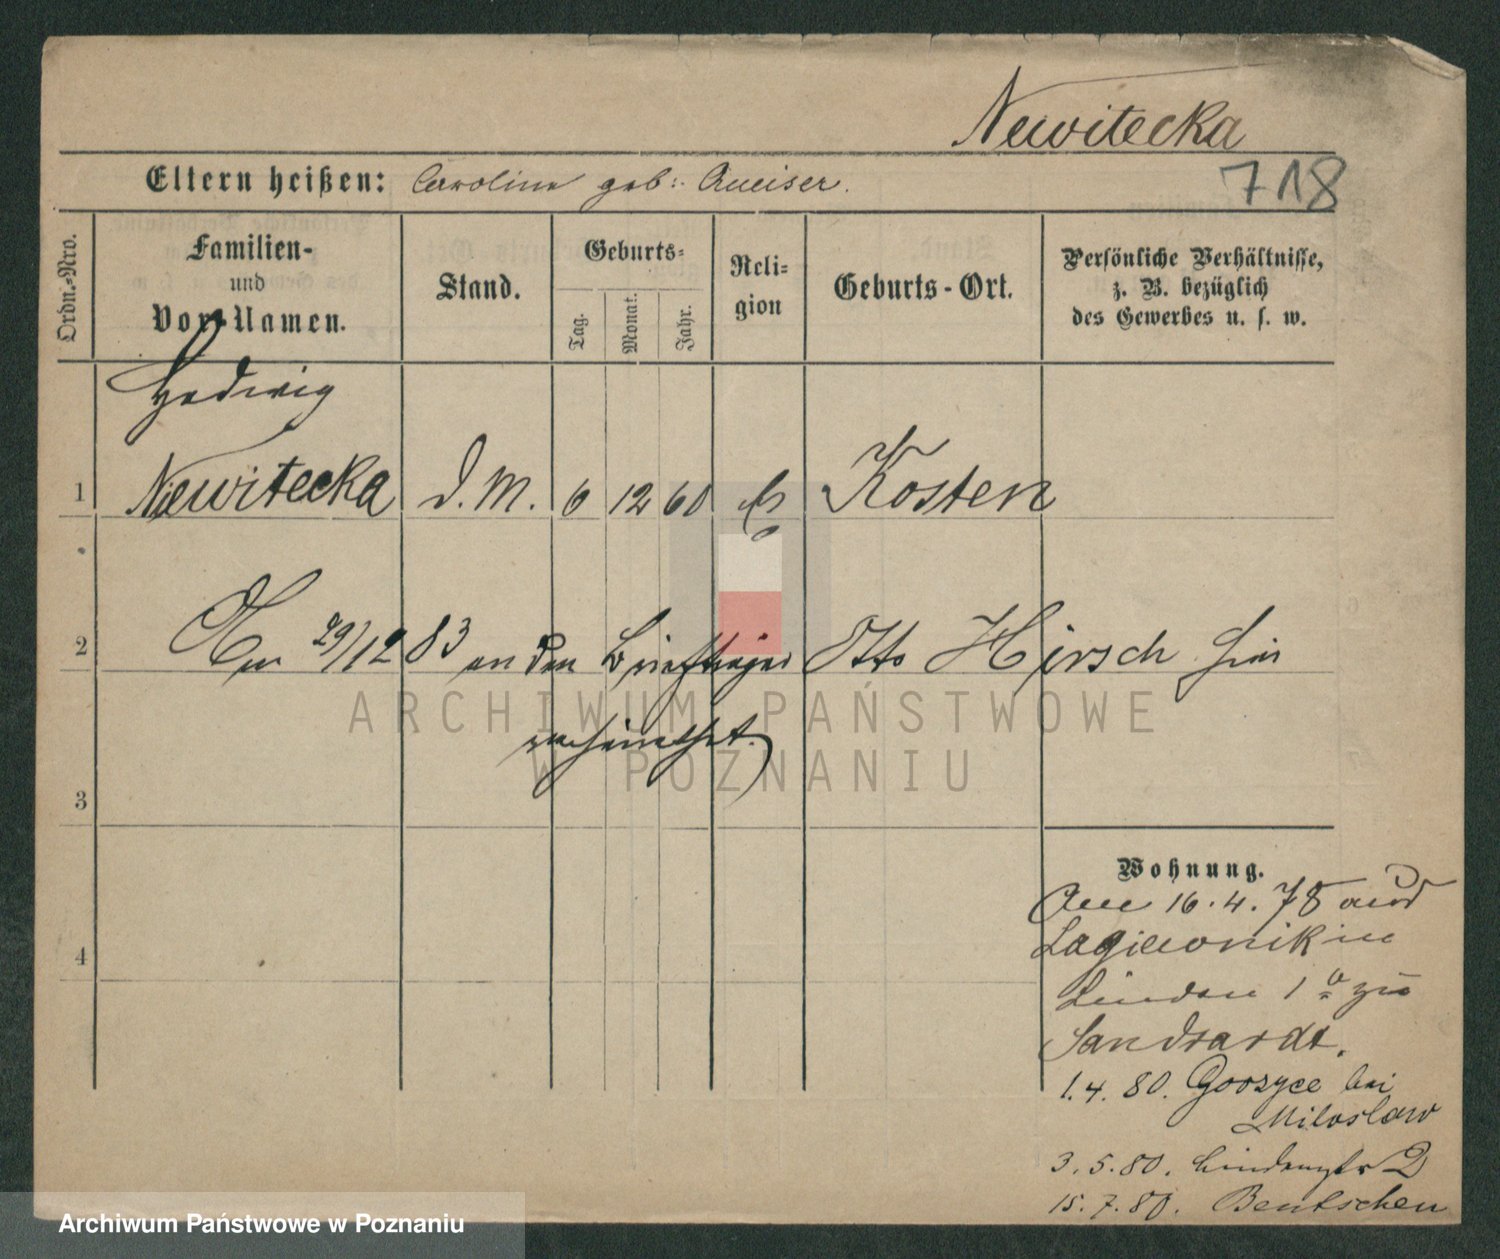 Newitecka
718
Eltern heißen: Caroline geb: Queiser.
Ordn.-Nro.
Familien-
und
Vor-Namen.
Stand.
Geburts-
Tag.
Monat.
Jahr.
Reli-
gion
Geburts-Ort.
Persönliche Verhältnisse,
z. B. bezüglich
des Gewerbes u. s. w.
Hedwig
1 Niewitecka d. M. 6 12 60 Kosten
2 Am 29/12 83 an den Briefträger Otto Hirsch hier
verheirathet.
3
4
Wohnung.
Am 16. 4. 78 aus
Lagiewnik in
Linden 1 zu
Sandrardt.
1. 4. 80. Gorzyce bei
Miloslaw
3. 5. 80. Lindenstr 2
15. 7. 80. Bentschen
ARCHIWUM PAŃSTWOWE
W POZNANIU
Archiwum Państwowe w Poznaniu